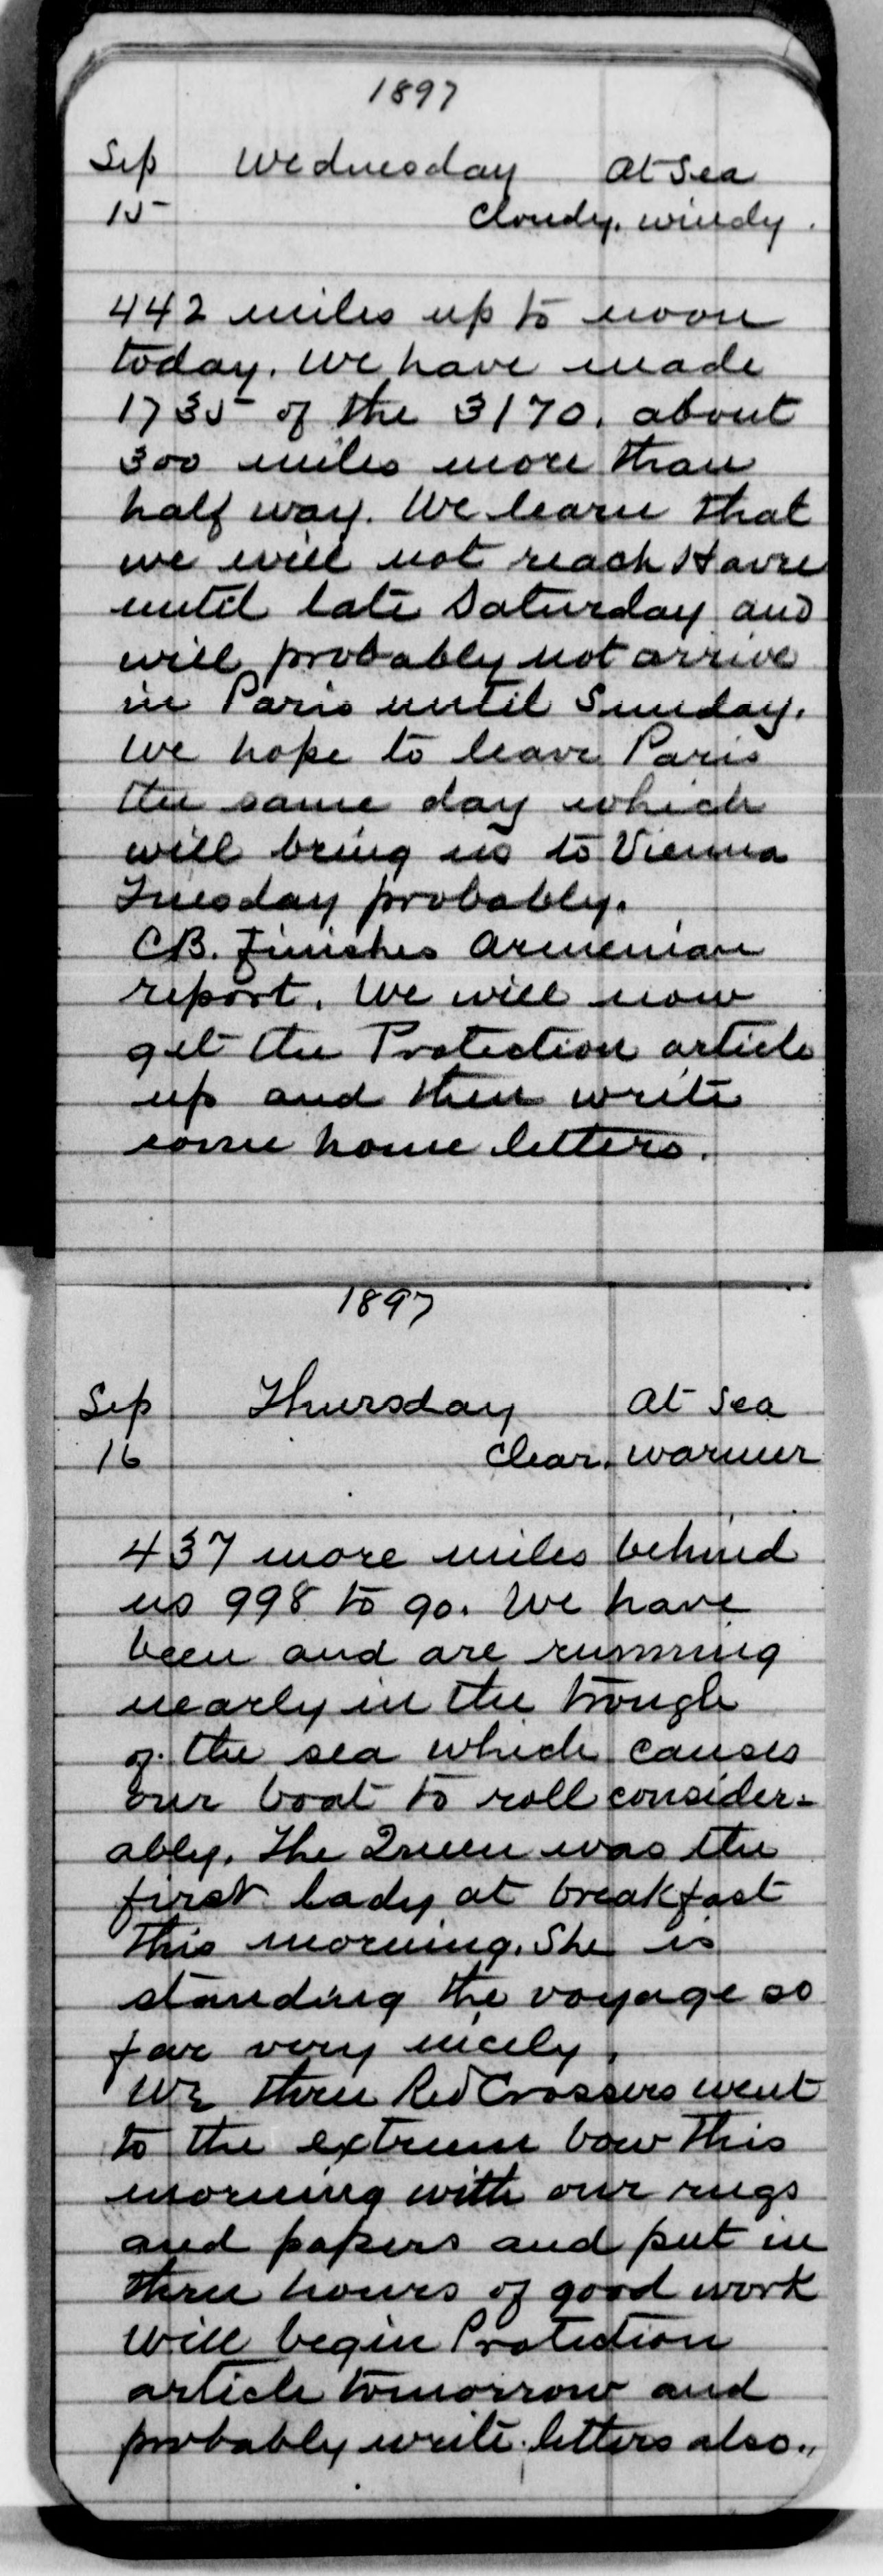 1897
Sep Wednesday At Sea
15 Cloudy. windy.
442 miles up to noon
today. We have made
1735 of the 3170. about
300 miles more than
half way. We learn that
we will not reach Havre
until late Saturday and
will probably not arrive
in Paris until Sunday.
We hope to leave Paris
the same day which
will bring us to Vienna
Tuesday probably.
CB. finishes Armenian
report. We will now
get the Protection article
up and then write
some home letters.
1897
Sep Thursday At Sea
16 Clear. warmer
437 more miles behind
us 998 to go. We have
been and are running
nearly in the trough
of the sea which causes
our boat to roll consider-
ably. The Queen was the
first lady at breakfast
this morning. She is
standing the voyage so
far very nicely.
We three Red Crossers went
to the extreme bow this
morning with our rugs
and papers and put in
three hours of good work
Will begin Protection
article tomorrow and
probably write letters also.